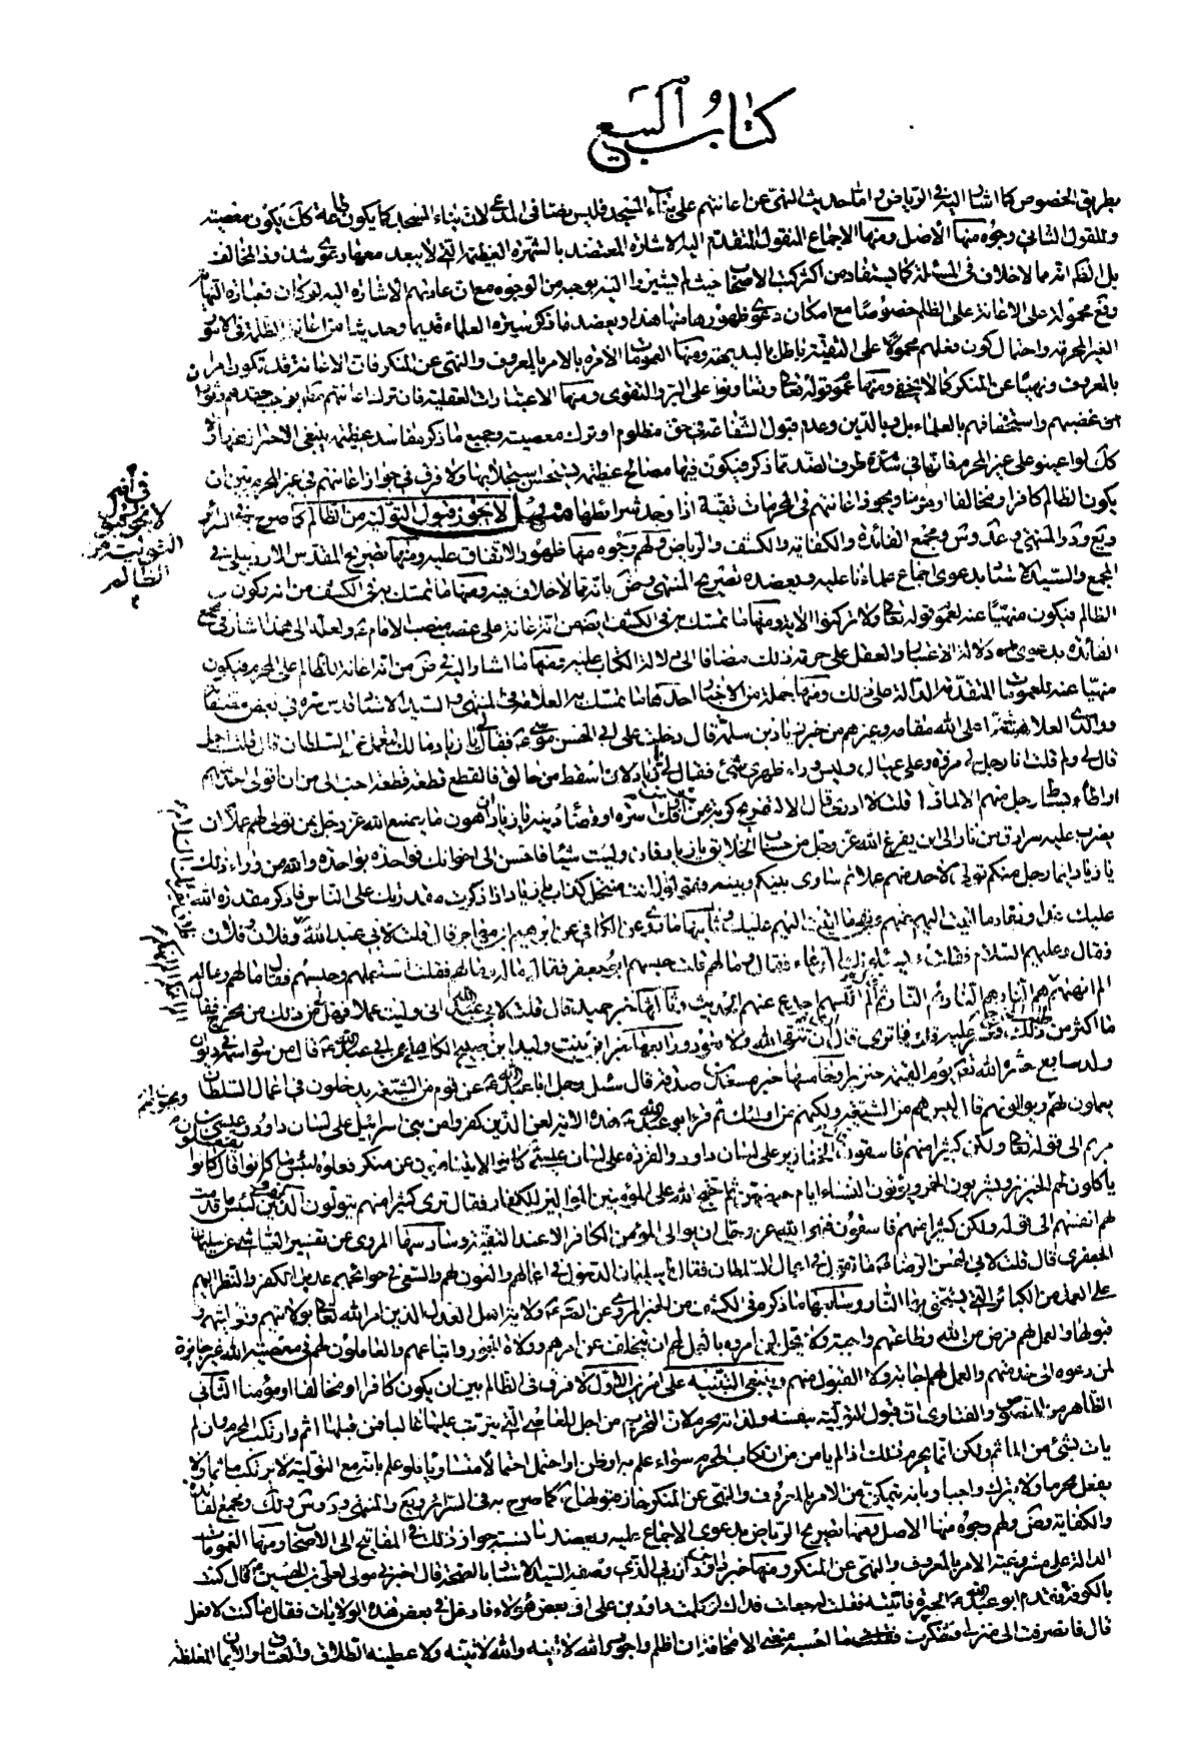 كتاب البيع
بطريق الخصوص كما اشار اليه في الرياض واما حديث النهى عن اعانتهم على بناء المسجد فليس بضائر في المدعى لان بناء المسجد كما يكون طاعة كك يكون معصية
وللقول الثاني وجوه منها الاصل ومنها الاجماع المنقول المتقدم اليه الاشارة المعتضد بالشهرة العظيمة التي لا يبعد معها دعوى شذوذ المخالف
بل الظ انه مما لا خلاف في المسئلة كما يستفاد من اكثر كتب الاصحاب حيث لم يشيروا اليه بوجه من الوجوه مع ان عادتهم الاشارة اليه لو كان فعبارة النهاية
وقع محمولة على الاعانة على الظلم خصوصا مع امكان دعوى ظهورها منها هذا ويعضد ما ذكر سيرة العلماء قديما وحديثا من اعانة الظلمة في الامور
الغير المحرمة واحتمال كون فعلهم محمولا على التقية باطل بالبديهة ومنها العمومات الامرة بالامر بالمعروف والنهى عن المنكر فان الاعانة قد تكون امرا
بالمعروف ونهيا عن المنكر كما لا يخفى ومنها عموم قوله تعالى وتعاونوا على البر والتقوى ومنها الاعتبارات العقلية فان ترك اعانتهم مما يوجب حقدهم وثوران
غضبهم واستخفافهم بالعلماء بل وبالدين وعدم قبول الشفاعة في حق مظلوم او ترك معصية وجميع ما ذكر مفاسد عظيمة ينبغي الاحتراز عنها
كك لو اعينوا على غير المحرم فانها في شدة طرف الضد مما ذكر فيكون فيها مصالح عظيمة يستحسن استجلابها ولا فرق في جواز اعانتهم في غير المحرم بين ان
يكون الظالم كافرا ومخالفا او مؤمنا ويجوز اعانتهم في المحرمات تقية اذا وجد شرائطها منهل لا يجوز قبول التولية من الظالم كما صرح به في السرائر
ويع ود والمنتهى وعد وس ومجمع الفائدة والكفاية والكشف والرياض ولهم وجوه منها ظهور الاتفاق عليه ومنها تصريح المقدس الاردبيلي في
المجمع والسيد الاستاد بدعوى اجماع علمائنا عليه ويعضده تصريح المنتهى وض بانه مما لا خلاف فيه ومنها ما تمسك به في الكشف من انه ركون
الظالم فيكون منهيا عنه لعموم قوله تعالى ولا تركنوا الاية ومنها ما تمسك به في الكشف ايض من انه اعانة على غصب منصب الامام ع ولعله الى هذا اشار في مجمع
الفائدة بدعوى دلالة الاعتبار والعقل على حرمة ذلك مضافا الى دلالة الكتاب عليه ومنها ما اشار اليه في ض من انه اعانة الظالم على المحرم فيكون
منهيا عنه للعمومات المتقدمة الدالة على ذلك ومنها جملة من الاخبار احدها ما تمسك به العلامة في المنتهى والسيد الاستاد قدس سره في بعض مصنفاته
ووالدي العلامة اعلى الله مقامه وغيرهم من خبر زياد بن سلمة قال دخلت على ابي الحسن موسى ع فقال لي يا زياد ما لك تعمل عمل السلطان قال قلت اجل
قال لي ولم قلت انا رجل لي مروة وعلى عيال وليس وراء ظهري شئ فقال لي يا زياد لان اسقط من حالق فاتقطع قطعة قطعة احب الى من ان اتولى لاحد منهم
او اطأ بساط رجل منهم الا لماذا قلت لا ادري قال الا لتفريج كربة عن مؤمن او فك اسره او قضاء دينه يا زياد ان اهون ما يصنع الله عز وجل بمن تولى لهم عملا ان
يضرب عليه سرادق من نار الى ان يفرغ الله عز وجل من حساب الخلايق يا زياد فان وليت شيئا فاحسن الى اخوانك فواحدة بواحدة والله من وراء ذلك
يا زياد ايما رجل منكم تولى لاحد منهم عملا ثم ساوى بينكم وبينه فقولوا له انت منتحل كذاب يا زياد اذا ذكرت مقدرتك على الناس فاذكر مقدرة الله
عليك غدا ونفاد ما اتيت اليهم عنهم وبقاء ما اتيت اليهم عليك وثانيها ما روى عن الكافي عن ابراهيم بن مهاجر قال قلت لابي عبد الله ع فلان وفلان
فقال وعليهم السلام قلت يسئلونك الدعاء فقال وما لهم قلت حبسهم ابو جعفر فقال وما لهم وما له فقلت استعملهم وحبسهم فقال ما لهم وما له
الم انههم الم انههم هم النار هم النار ثم قال اللهم اجدع عنهم الحديث وثالثها خبر حميد قال قلت لابي عبد الله ع انى وليت عملا فهل لى من ذلك من مخرج فقال
ما اكثر من طلب ذلك فعسر عليه قلت فما ترى قال ارى ان تتقى الله ولا تعود ورابعها خبر ابن بنت وليد ابن صبيح الكاهلي عن ابي عبد الله ع قال من سود اسمه في ديوان
ولد سابع حشره الله تعالى يوم القيمة خنزيرا وخامسها خبر مسعدة بن صدقة قال سئل رجل ابا عبد الله ع عن قوم من الشيعة يدخلون في اعمال السلطان
يعملون لهم ويوالونهم قال ليس هم من الشيعة ولكنهم من اولئك ثم قرأ ابو عبد الله ع هذه الاية لعن الذين كفروا من بنى اسرائيل على لسان داود وعيسى بن
مريم الى قوله تعالى ولكن كثيرا منهم فاسقون قال الخنازير على لسان داود والقردة على لسان عيسى كانوا لا يتناهون عن منكر فعلوه لبئس ما كانوا يفعلون قال كانوا
ياكلون لحم الخنزير ويشربون الخمر ويؤتون النساء ايام حيضهن ثم احتج الله على المؤمنين الموالين للكفار فقال ترى كثيرا منهم يتولون الذين كفروا لبئس ما قدمت
لهم انفسهم الى قوله ولكن كثيرا منهم فاسقون فنهى الله عز وجل ان يوالى المؤمن الكافر الا عند التقية وسادسها المروى عن تفسير العياشي عن سليمان
الجعفري قال قلت لابي الحسن الرضا ع ما تقول في اعمال السلطان فقال يا سليمان الدخول في اعمالهم والعون لهم والسعى في حوائجهم عديل الكفر والنظر اليهم
على العمد من الكبائر التي يستحق بها النار وسابعها ما ذكره في الكشف من الخبر المروى عن الصادق ع ولاية اهل العدل الذين امر الله تعالى بولايتهم وتوليتهم
قبولها والعمل لهم فرض من الله وطاعتهم واجبة ولا يحل لمن امروه بالعمل لهم ان يتخلف عن امرهم وولاة الجور واتباعهم والعاملون لهم في معصية الله غير جائزة
لمن دعوه الى خدمتهم والعمل لهم اجابته ولا القبول منهم وينبغي التنبيه على امور الاول لا فرق في الظالم بين ان يكون كافرا او مخالفا او مؤمنا الثاني
الظاهر من النصوص والفتاوى ان قبول التولية بنفسه ولذاته محرم لا ان التحريم من اجل المعاصي التي يترتب عليها غالبا فمن قبلها اثم وارتكب المحرم وان لم
يات بشئ من الماثم ولكن انما يحرم ذلك اذا لم يامن من ارتكاب المحرم سواء علم به او ظن او احتمل احتمالا متساويا فلو علم بانه مع التولية لا يرتكب ماثما ولا
يفعل محرما ولا يترك واجبا وبانه يتمكن من الامر بالمعروف والنهى عن المنكر جاز قبولها كما صرح به في السرائر ويع والمنتهى ود وس وك ومجمع الفائدة
والكفاية وض ولهم وجوه منها الاصل ومنها تصريح الرياض بدعوى الاجماع عليه ويعضده نسبة جواز ذلك في المفاتيح الى الاصحاب ومنها العمومات
الدالة على مشروعية الامر بالمعروف والنهى عن المنكر ومنها خبر داود بن زربي الذي وصفه السيد الاستاد بالصحة قال اخبرني مولى لعلي بن الحسين ع قال كنت
بالكوفة فقدم ابو عبد الله ع الحيرة فاتيته فقلت له جعلت فداك لو كلمت داود بن على او بعض هؤلاء فادخل في بعض هذه الولايات فقال ما كنت لافعل
قال فانصرفت الى منزلي فتفكرت فقلت ما احسبه منعني الا مخافة ان اظلم او اجور والله لاتينه والله لاتينه ولاعطينه الطلاق والعتاق والايمان المغلظة
في انه
لا يجوز قبول
التولية من
الظالم